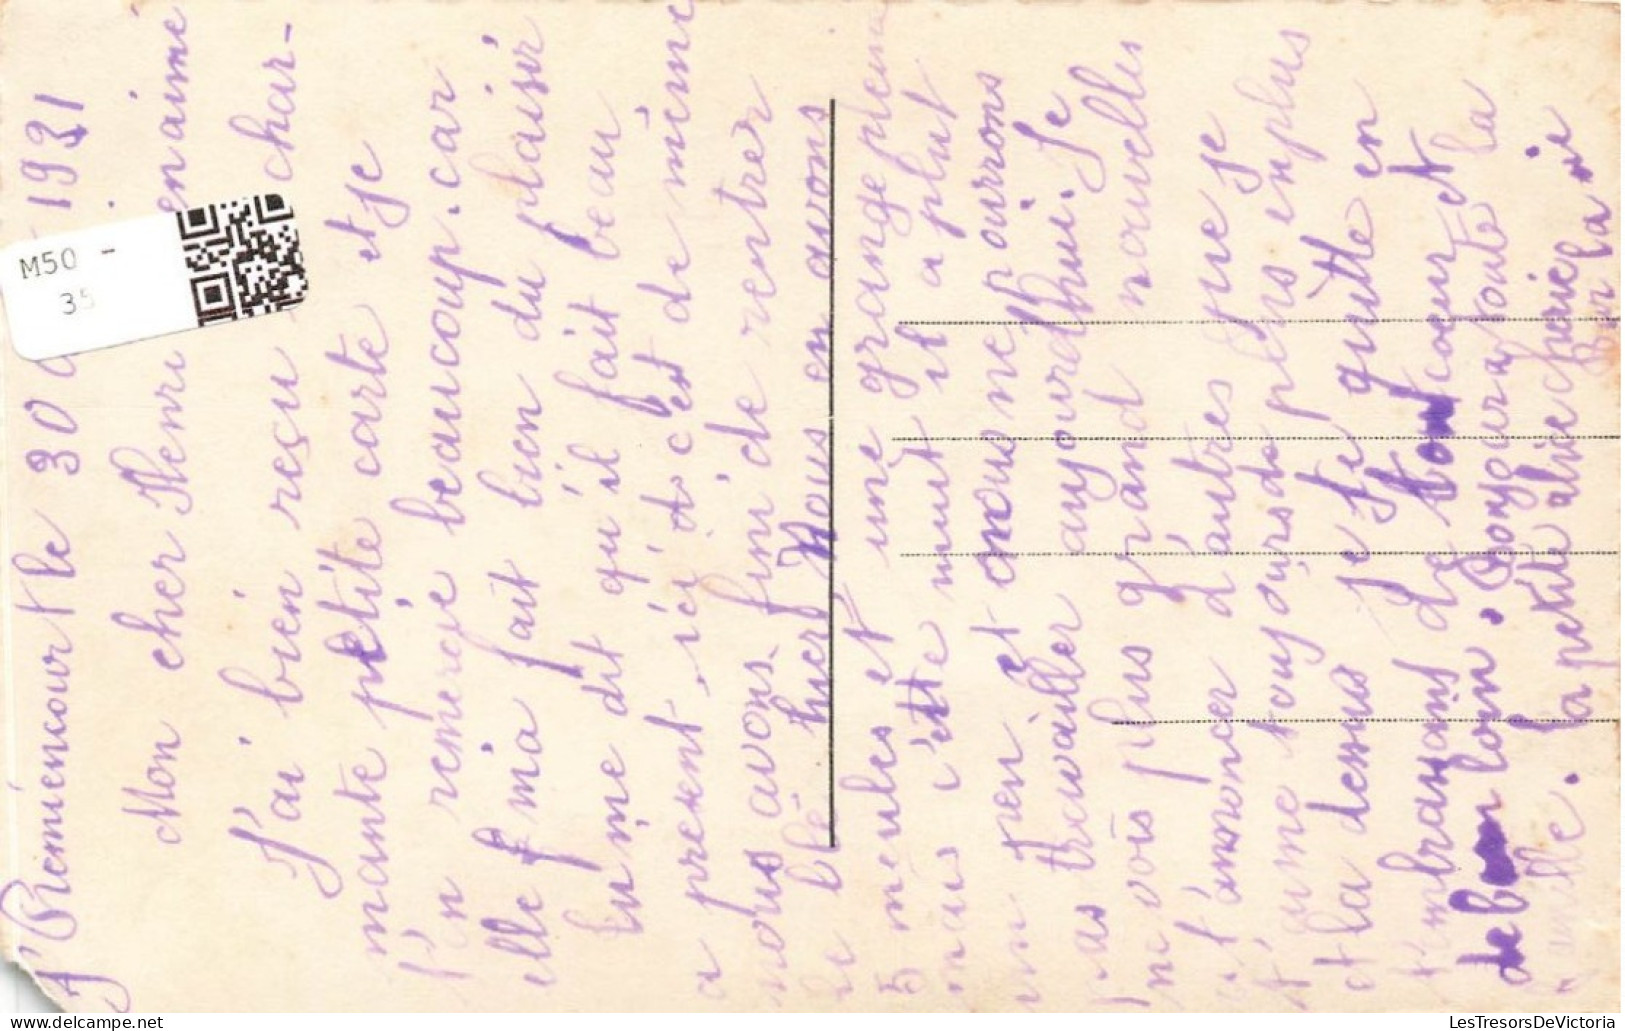 J' Remiencourt le 30 1931
Mon cher Henri enaimé
J'ai bien reçu char-
mante petite carte et je
t'en remercie beaucoup. car
elle m'a fait bien du plaisir
tu me dit qu'il fait beau
a present, ici c'est de même
nous avons fini de rentrer
le blé hier Nous en avons
5 meules et une grange pleine
mais cette nuit il a plut
un rien et nous ne pourrons
pas travailler aujourdhui. Je
ne vois plus grand nouvelles
a t'annoncer d'autres que je
t'aime toujours de plus enplus
et la dessus je te quitte en
t'embrassant de tout coeur et
de loin. Bonjour a toute la
famille. ta petite alice cherie
Pour la vie
M50 -
35
LesTresorsDeVictoria